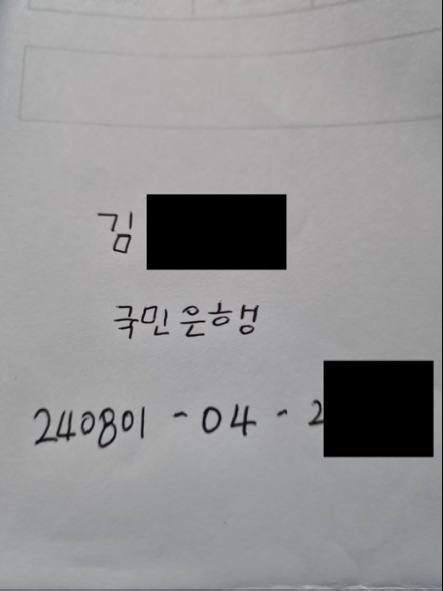 김
국민은행
240801-04-2